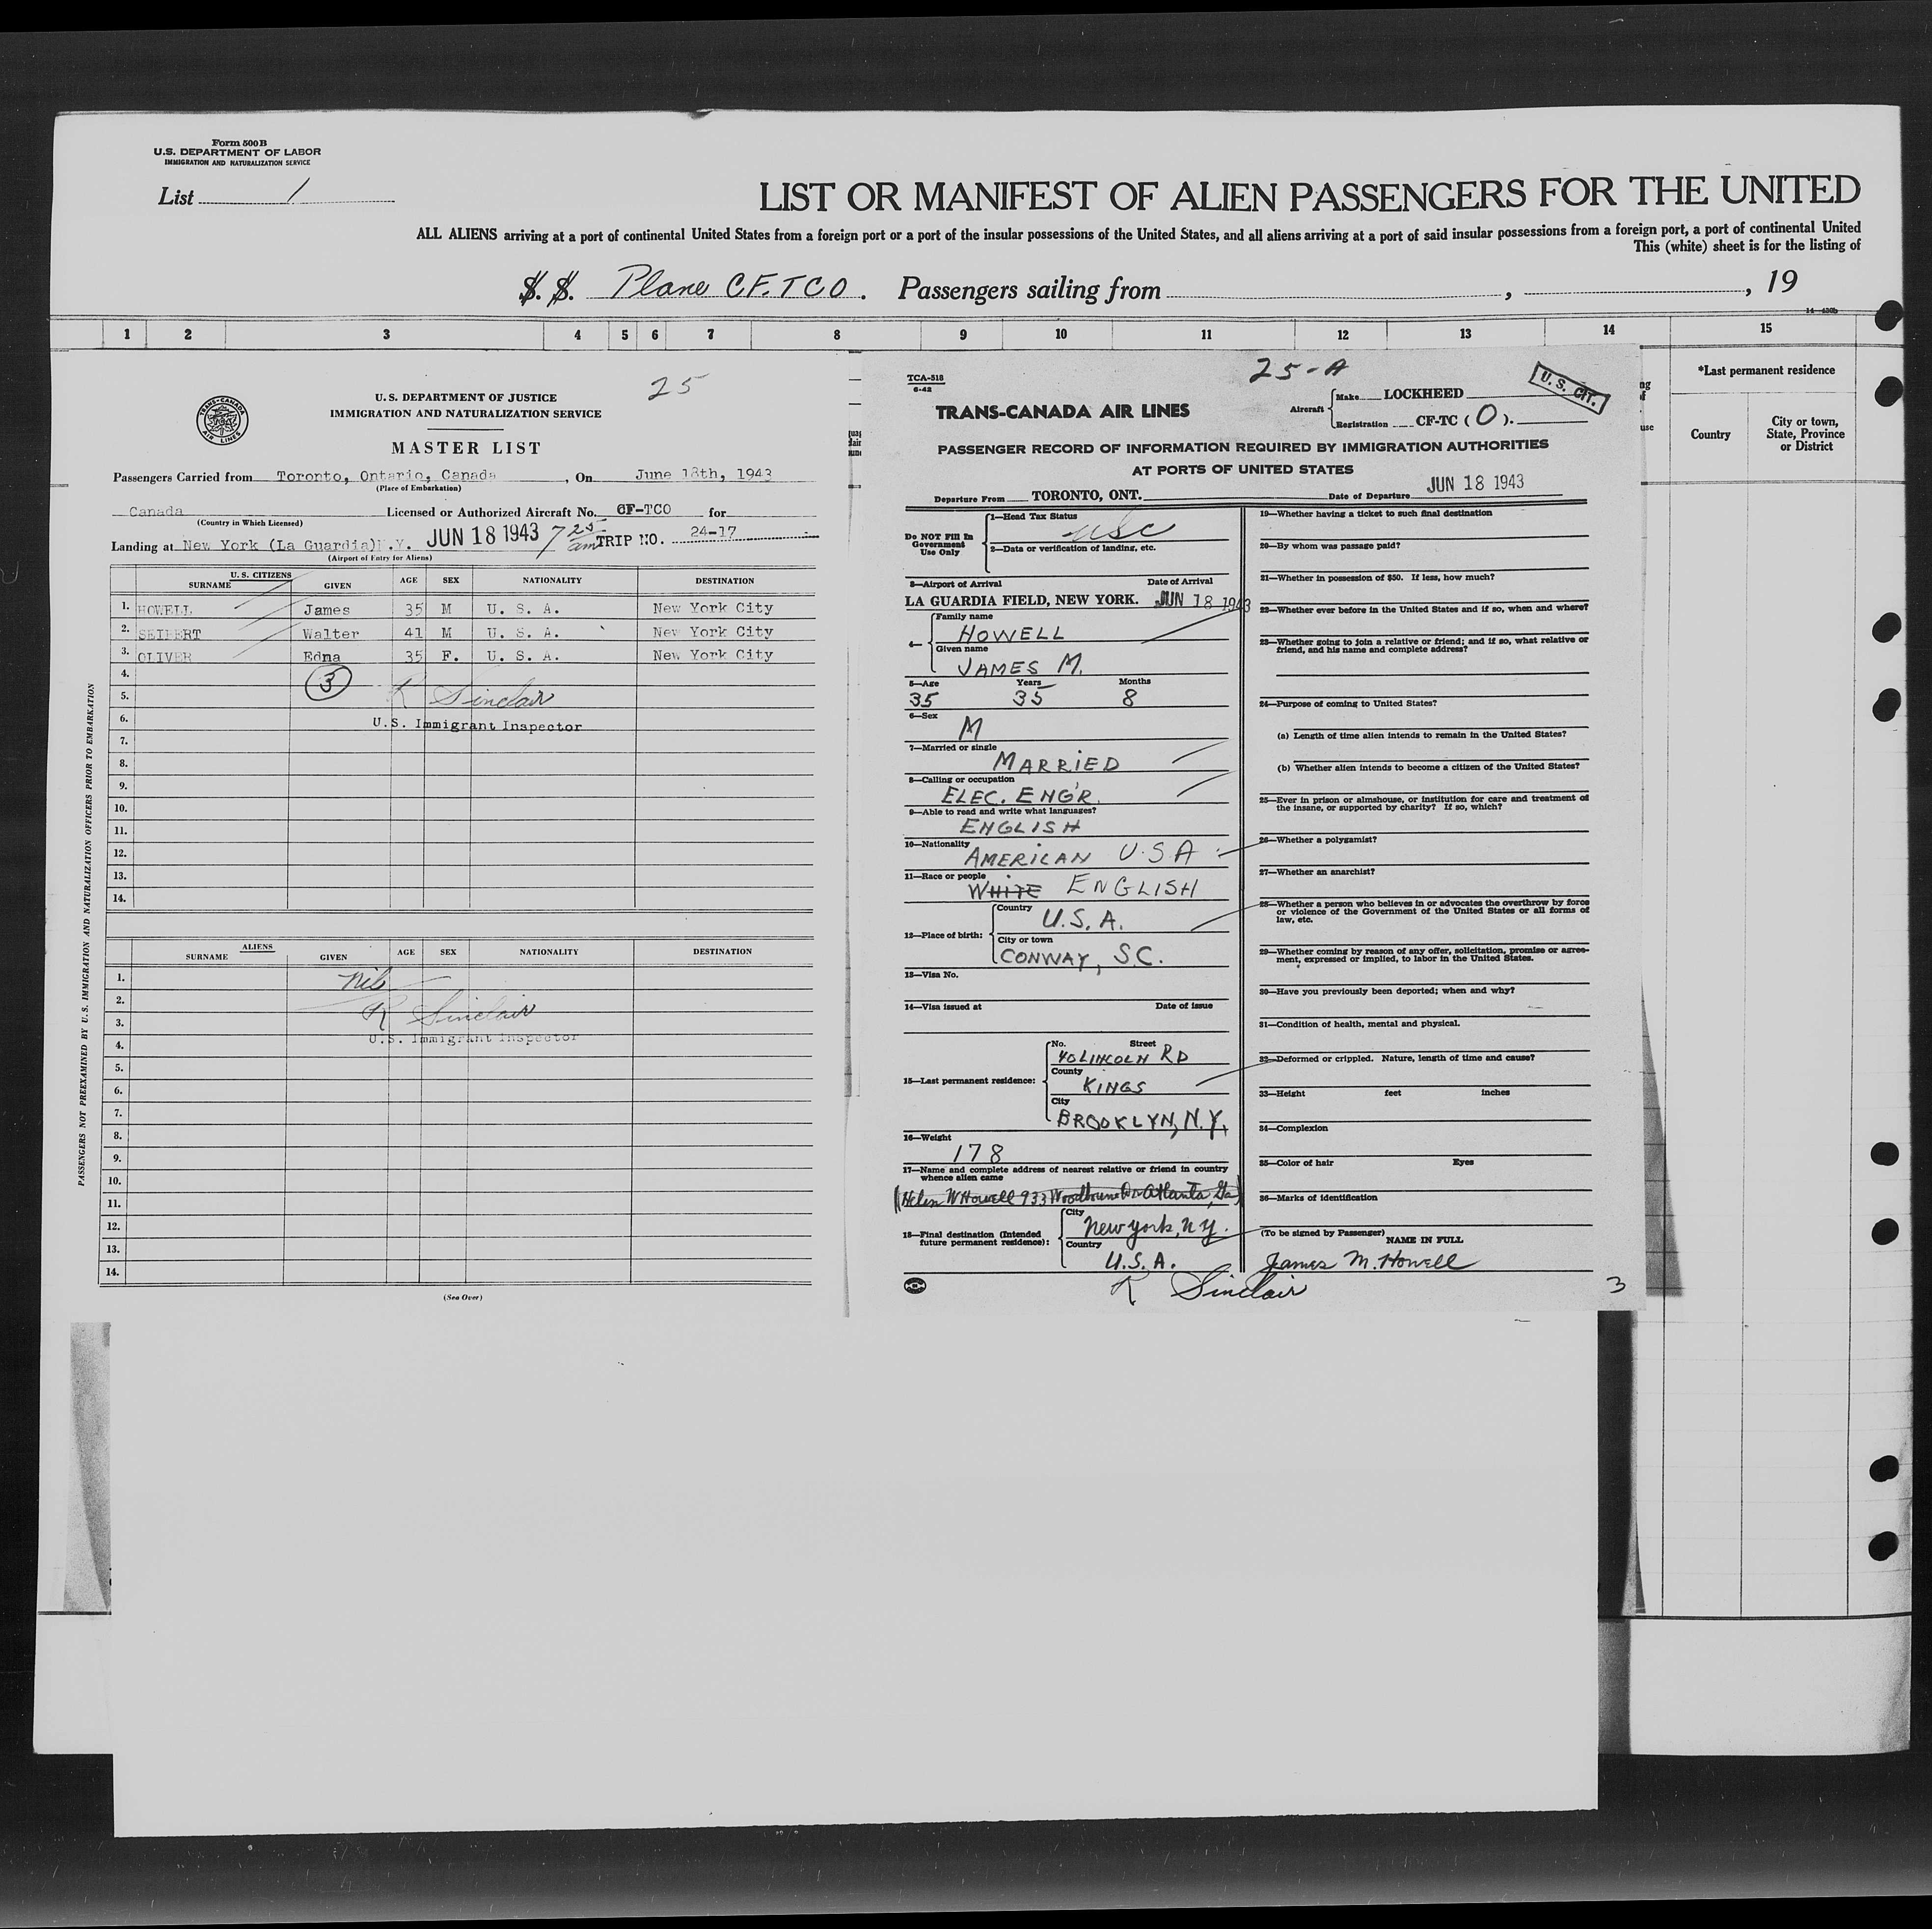 Form 500B
U.S. DEPARTMENT OF LABOR
IMMIGRATION AND NATURALIZATION SERVICE
List 1
LIST OR MANIFEST OF ALIEN PASSENGERS FOR THE UNITED
ALL ALIENS arriving at a port of continental United States from a foreign port or a port of the insular possessions of the United States, and all aliens arriving at a port of said insular possessions from a foreign port, a port of continental United
This (white) sheet is for the listing of
S. S. Plane CF.TCO. Passengers sailing from , , 19
1 2 3 4 5 6 7 8 9 10 11 12 13 14 15
*Last permanent residence
Country
City or town,
State, Province
or District
25
TRANS-CANADA AIR LINES
U.S. DEPARTMENT OF JUSTICE
IMMIGRATION AND NATURALIZATION SERVICE
MASTER LIST
Passengers Carried from Toronto, Ontario, Canada, On June 18th, 1943
(Place of Embarkation)
Canada Licensed or Authorized Aircraft No. CF-TCO for
(Country in Which Licensed)
Landing at New York (La Guardia)N.Y. JUN 18 1943 7 25 am TRIP NO. 24-17
(Airport of Entry for Aliens)
U.S. CITIZENS
SURNAME GIVEN AGE SEX NATIONALITY DESTINATION
1. HOWELL James 35 M U. S. A. New York City
2. SEIBERT Walter 41 M U. S. A. New York City
3. OLIVER Edna 35 F. U. S. A. New York City
4. 3
5. R Sinclair
6. U.S. Immigrant Inspector
7.
8.
9.
10.
11.
12.
13.
14.
ALIENS
SURNAME GIVEN AGE SEX NATIONALITY DESTINATION
1. Nil
2. R Sinclair
3.
4. U.S. Immigrant Inspector
5.
6.
7.
8.
9.
10.
11.
12.
13.
14.
(See Over)
PASSENGERS NOT PREEXAMINED BY U.S. IMMIGRATION AND NATURALIZATION OFFICERS PRIOR TO EMBARKATION
TCA-518
6-42
25-A
U. S. CIT.
TRANS-CANADA AIR LINES
Aircraft
Make LOCKHEED
Registration CF-TC (O).
PASSENGER RECORD OF INFORMATION REQUIRED BY IMMIGRATION AUTHORITIES
AT PORTS OF UNITED STATES
Departure From TORONTO, ONT. Date of Departure JUN 18 1943
Do NOT Fill In
Government
Use Only
1—Head Tax Status
USC
2—Data or verification of landing, etc.
3—Airport of Arrival Date of Arrival
LA GUARDIA FIELD, NEW YORK. JUN 18 1943
4—
Family name
HOWELL
Given name
JAMES M.
5—Age Years Months
35 35 8
6—Sex
M
7—Married or single
MARRIED
8—Calling or occupation
ELEC. ENG'R.
9—Able to read and write what languages?
ENGLISH
10—Nationality
AMERICAN U.S.A
11—Race or people
WHITE ENGLISH
12—Place of birth:
Country
U.S.A.
City or town
CONWAY, S.C.
13—Visa No.
14—Visa issued at Date of issue
15—Last permanent residence:
No. Street
40 LINCOLN RD
County
KINGS
City
BROOKLYN, N.Y.
16—Weight
178
17—Name and complete address of nearest relative or friend in country
whence alien came
(Helen W Howell 933 Dr Atlanta, Ga)
18—Final destination (Intended
future permanent residence):
City
New york, N Y.
Country
U.S.A.
19—Whether having a ticket to such final destination
20—By whom was passage paid?
21—Whether in possession of $50. If less, how much?
22—Whether ever before in the United States and if so, when and where?
23—Whether going to join a relative or friend; and if so, what relative or
friend, and his name and complete address?
24—Purpose of coming to United States?
(a) Length of time alien intends to remain in the United States?
(b) Whether alien intends to become a citizen of the United States?
25—Ever in prison or almshouse, or institution for care and treatment of
the insane, or supported by charity? If so, which?
26—Whether a polygamist?
27—Whether an anarchist?
28—Whether a person who believes in or advocates the overthrow by force
or violence of the Government of the United States or all forms of
law, etc.
29—Whether coming by reason of any offer, solicitation, promise or agree-
ment, expressed or implied, to labor in the United States.
30—Have you previously been deported; when and why?
31—Condition of health, mental and physical.
32—Deformed or crippled. Nature, length of time and cause?
33—Height feet inches
34—Complexion
35—Color of hair Eyes
36—Marks of identification
(To be signed by Passenger)
NAME IN FULL
James M. Howell
R Sinclair
3